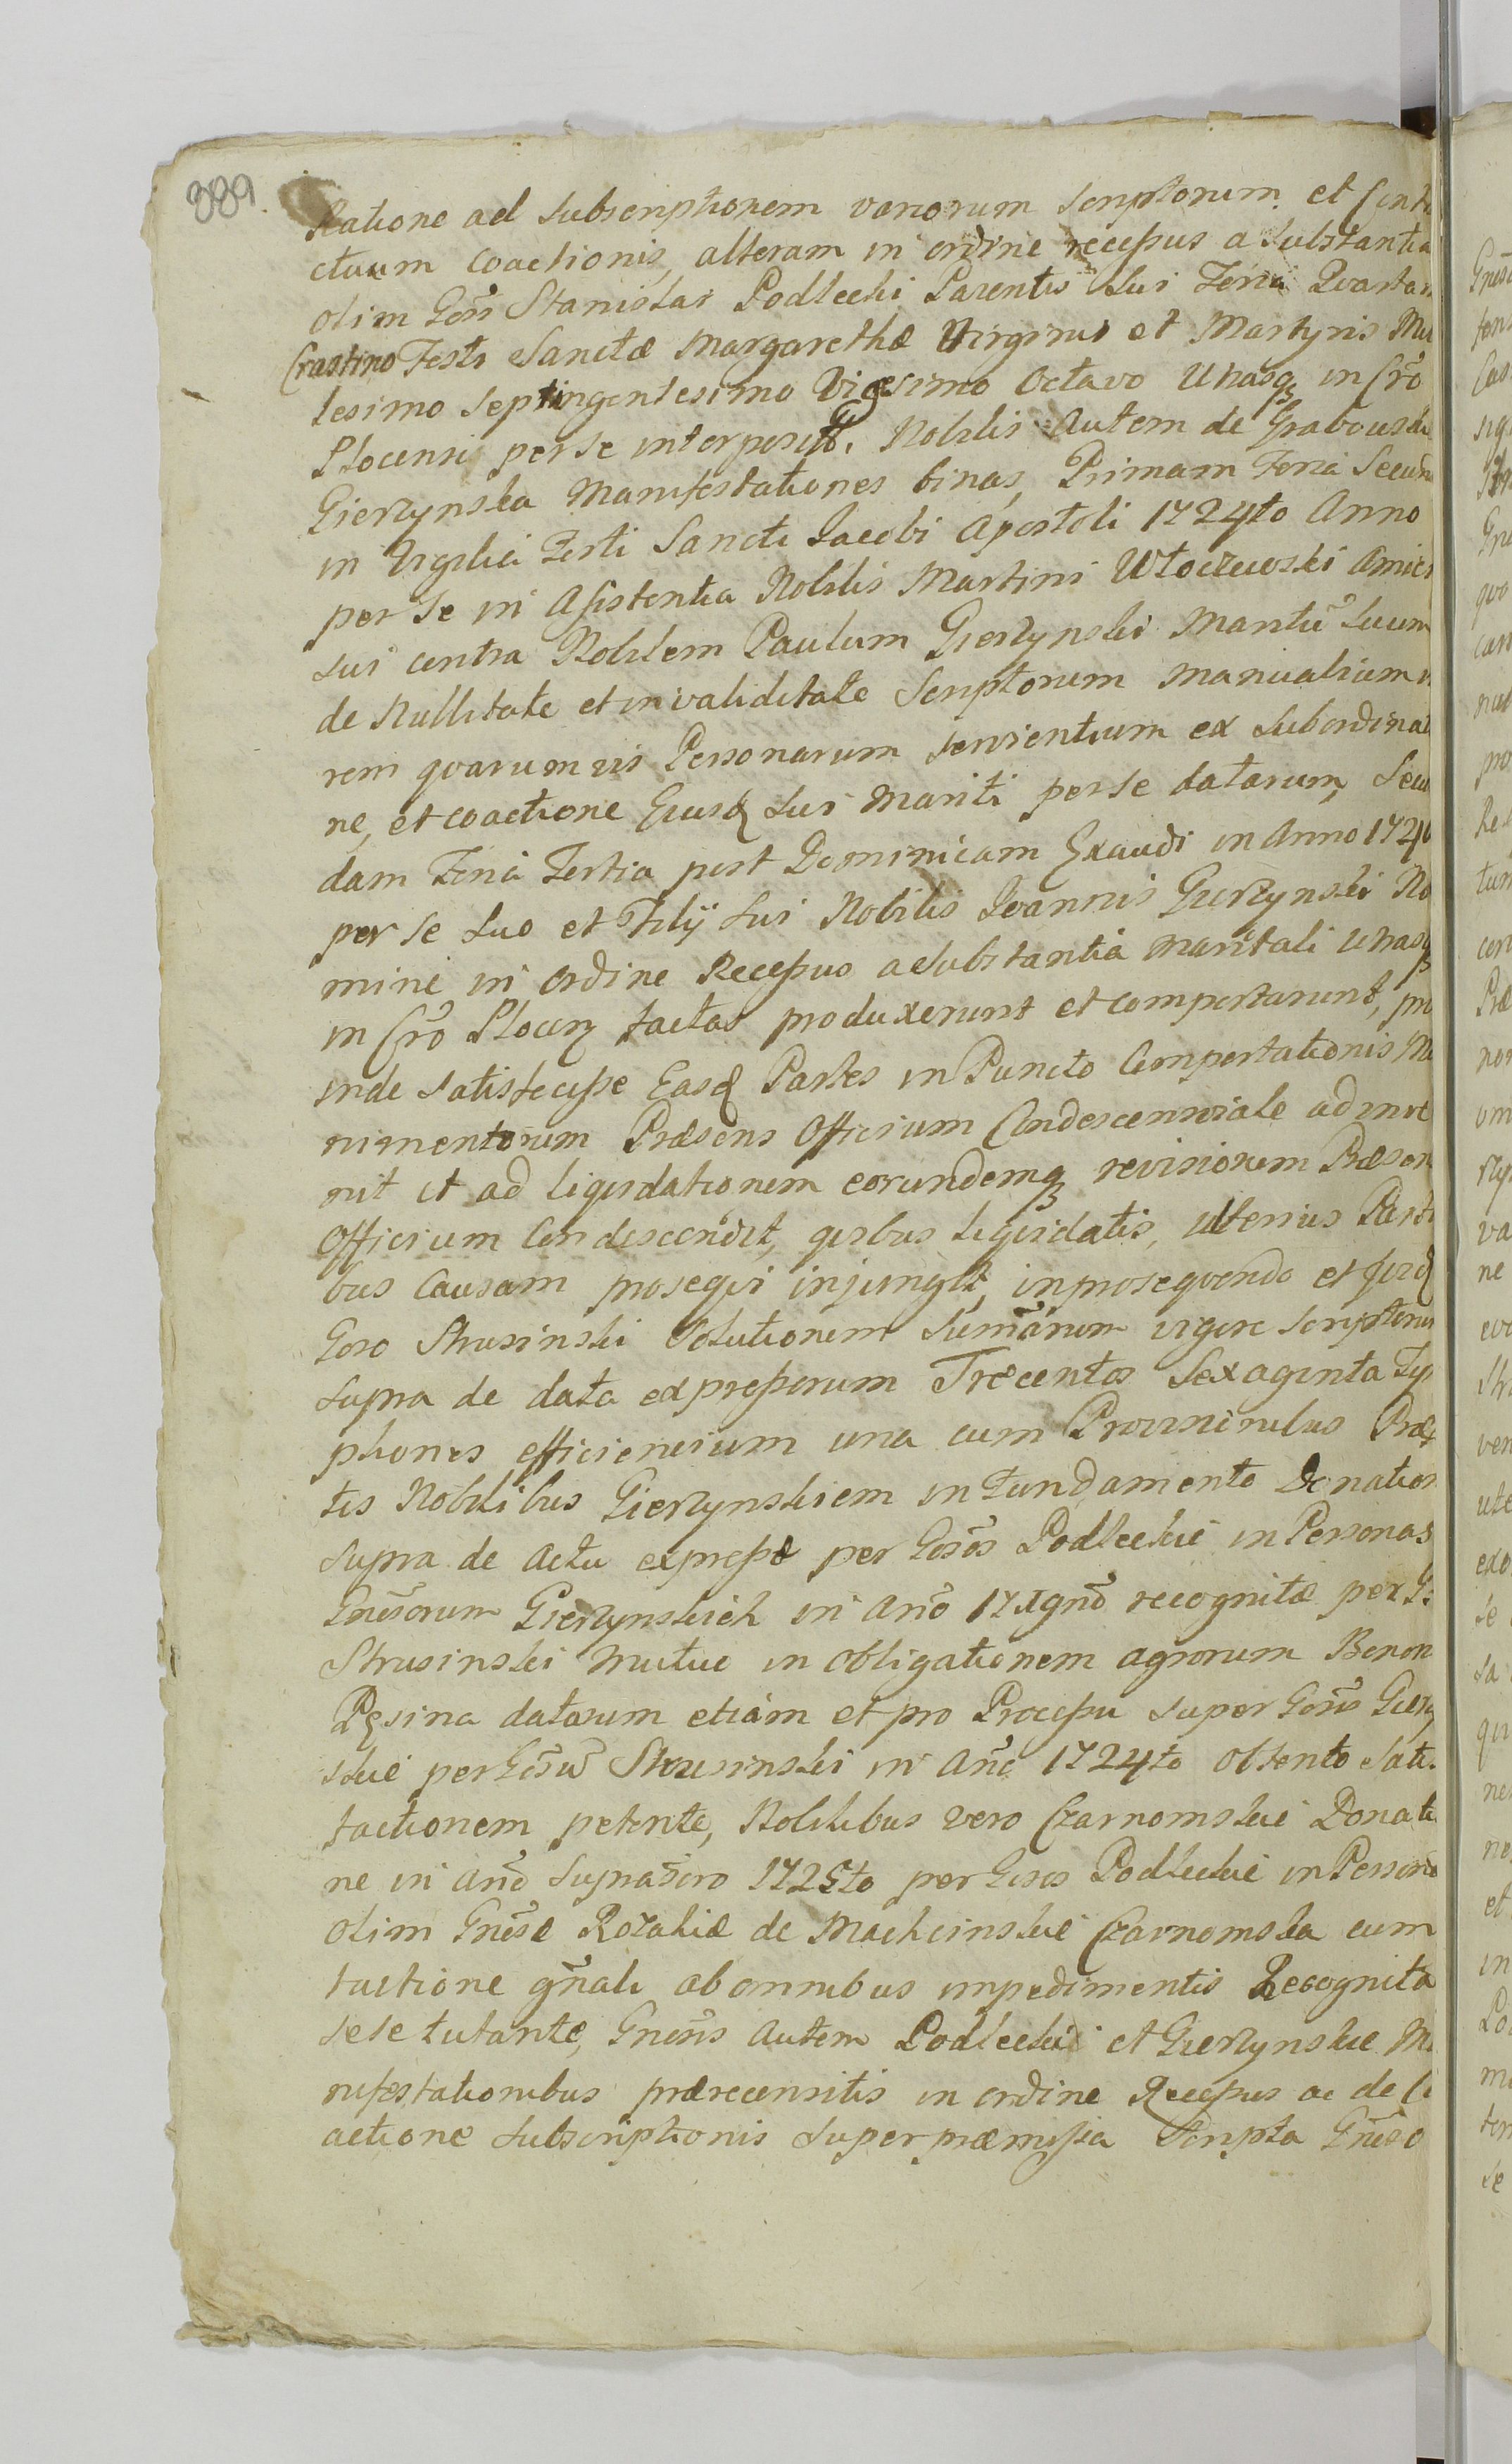 889.
Ratione ad Subscriptionem variorum Scriptorum et Cont
ctuum coactionis, alteram in ordine recessus a Substantia
olim Gñsi Stanislai Podlecki Parentis Sui Feria Quarta
Crastino Festi Sanctæ Margarethæ Virginis et Martyris Mil
lesimo Septingentesimo Vigesimo Octavo Unasq in Cro
Plocensi per se interpositas, Nobilis Autem de Grabowskie
Gierzynska Manifestationes binas, Primam Feria Secun
in Vigilia Festi Sancti Jacobi Apostoli 1724to Anno
per Se in Assistentia Nobilis Martini Włoczewski Amici
sui contra Nobilem Paulum Gierzynski Maritũ Suum
de Nullitate et invaliditate Scriptorum Manualium
rem quarumvis Personarum servientium ex Subordinat
ne, et coactione Ejusq Sui Mariti per se datarum, Secu
dam Feria Tertia post Dominicam Exaudi in Anno 1724
per Se Suo et Filij Sui Nobilis Joannis Gierzynski No
mine in Ordine Recessus a Substantia Maritali Unasq
in Cro Plocen factas produxerunt et comportarunt, pro
inde Satisfecisse Easq Partes in Puncto Comportationis Mu
nimentorum Præsens Officium Condescensoriale adinve
nit et ad liquidationem eorundemq revisionem Præsen
Officium Condescendit, quibus liquidatis, ulterius Parti
bus Causam prosequi injungit, in prosequendo et
Goso Strusinski Solutionem Sum̃arum vigore Scriptorum
Supra de data expressorum Trecentos Sexaginta Ty
phones efficientium una cum Provisionibus Præf
tis Nobilibus Gierzynskiem in Fundamento Donation
Supra de Actu expressæ per Gosos Podleckie in Personas
Gnẽsorum Gierzynskich in Añõ 17 recognitæ per G
Strusinski Mutuo in obligationem agrorum Bonon
datarum etiam et pro Processu Super Gosos Gierzyn
skie per Gosũ Strusinski in Año 1724to obtento Satis
factionem petente, Nobilibus vero Czarnomskie Donatio
ne in Año Supra 1725to per Gosos Podleckie in Persona
olim Gnẽsæ Rozaliæ de Machcinskie Czarnomska cum
tuitione gñali ab omnibus impedimentis Recognita
Sese tutante, Gnẽsis Autem Podleckie et Gierzynskie Ma
nifestationibus prærecensitis in ordine Recessus ac de Co
actione Subscriptionis Super præmissa Scripta Gñeso